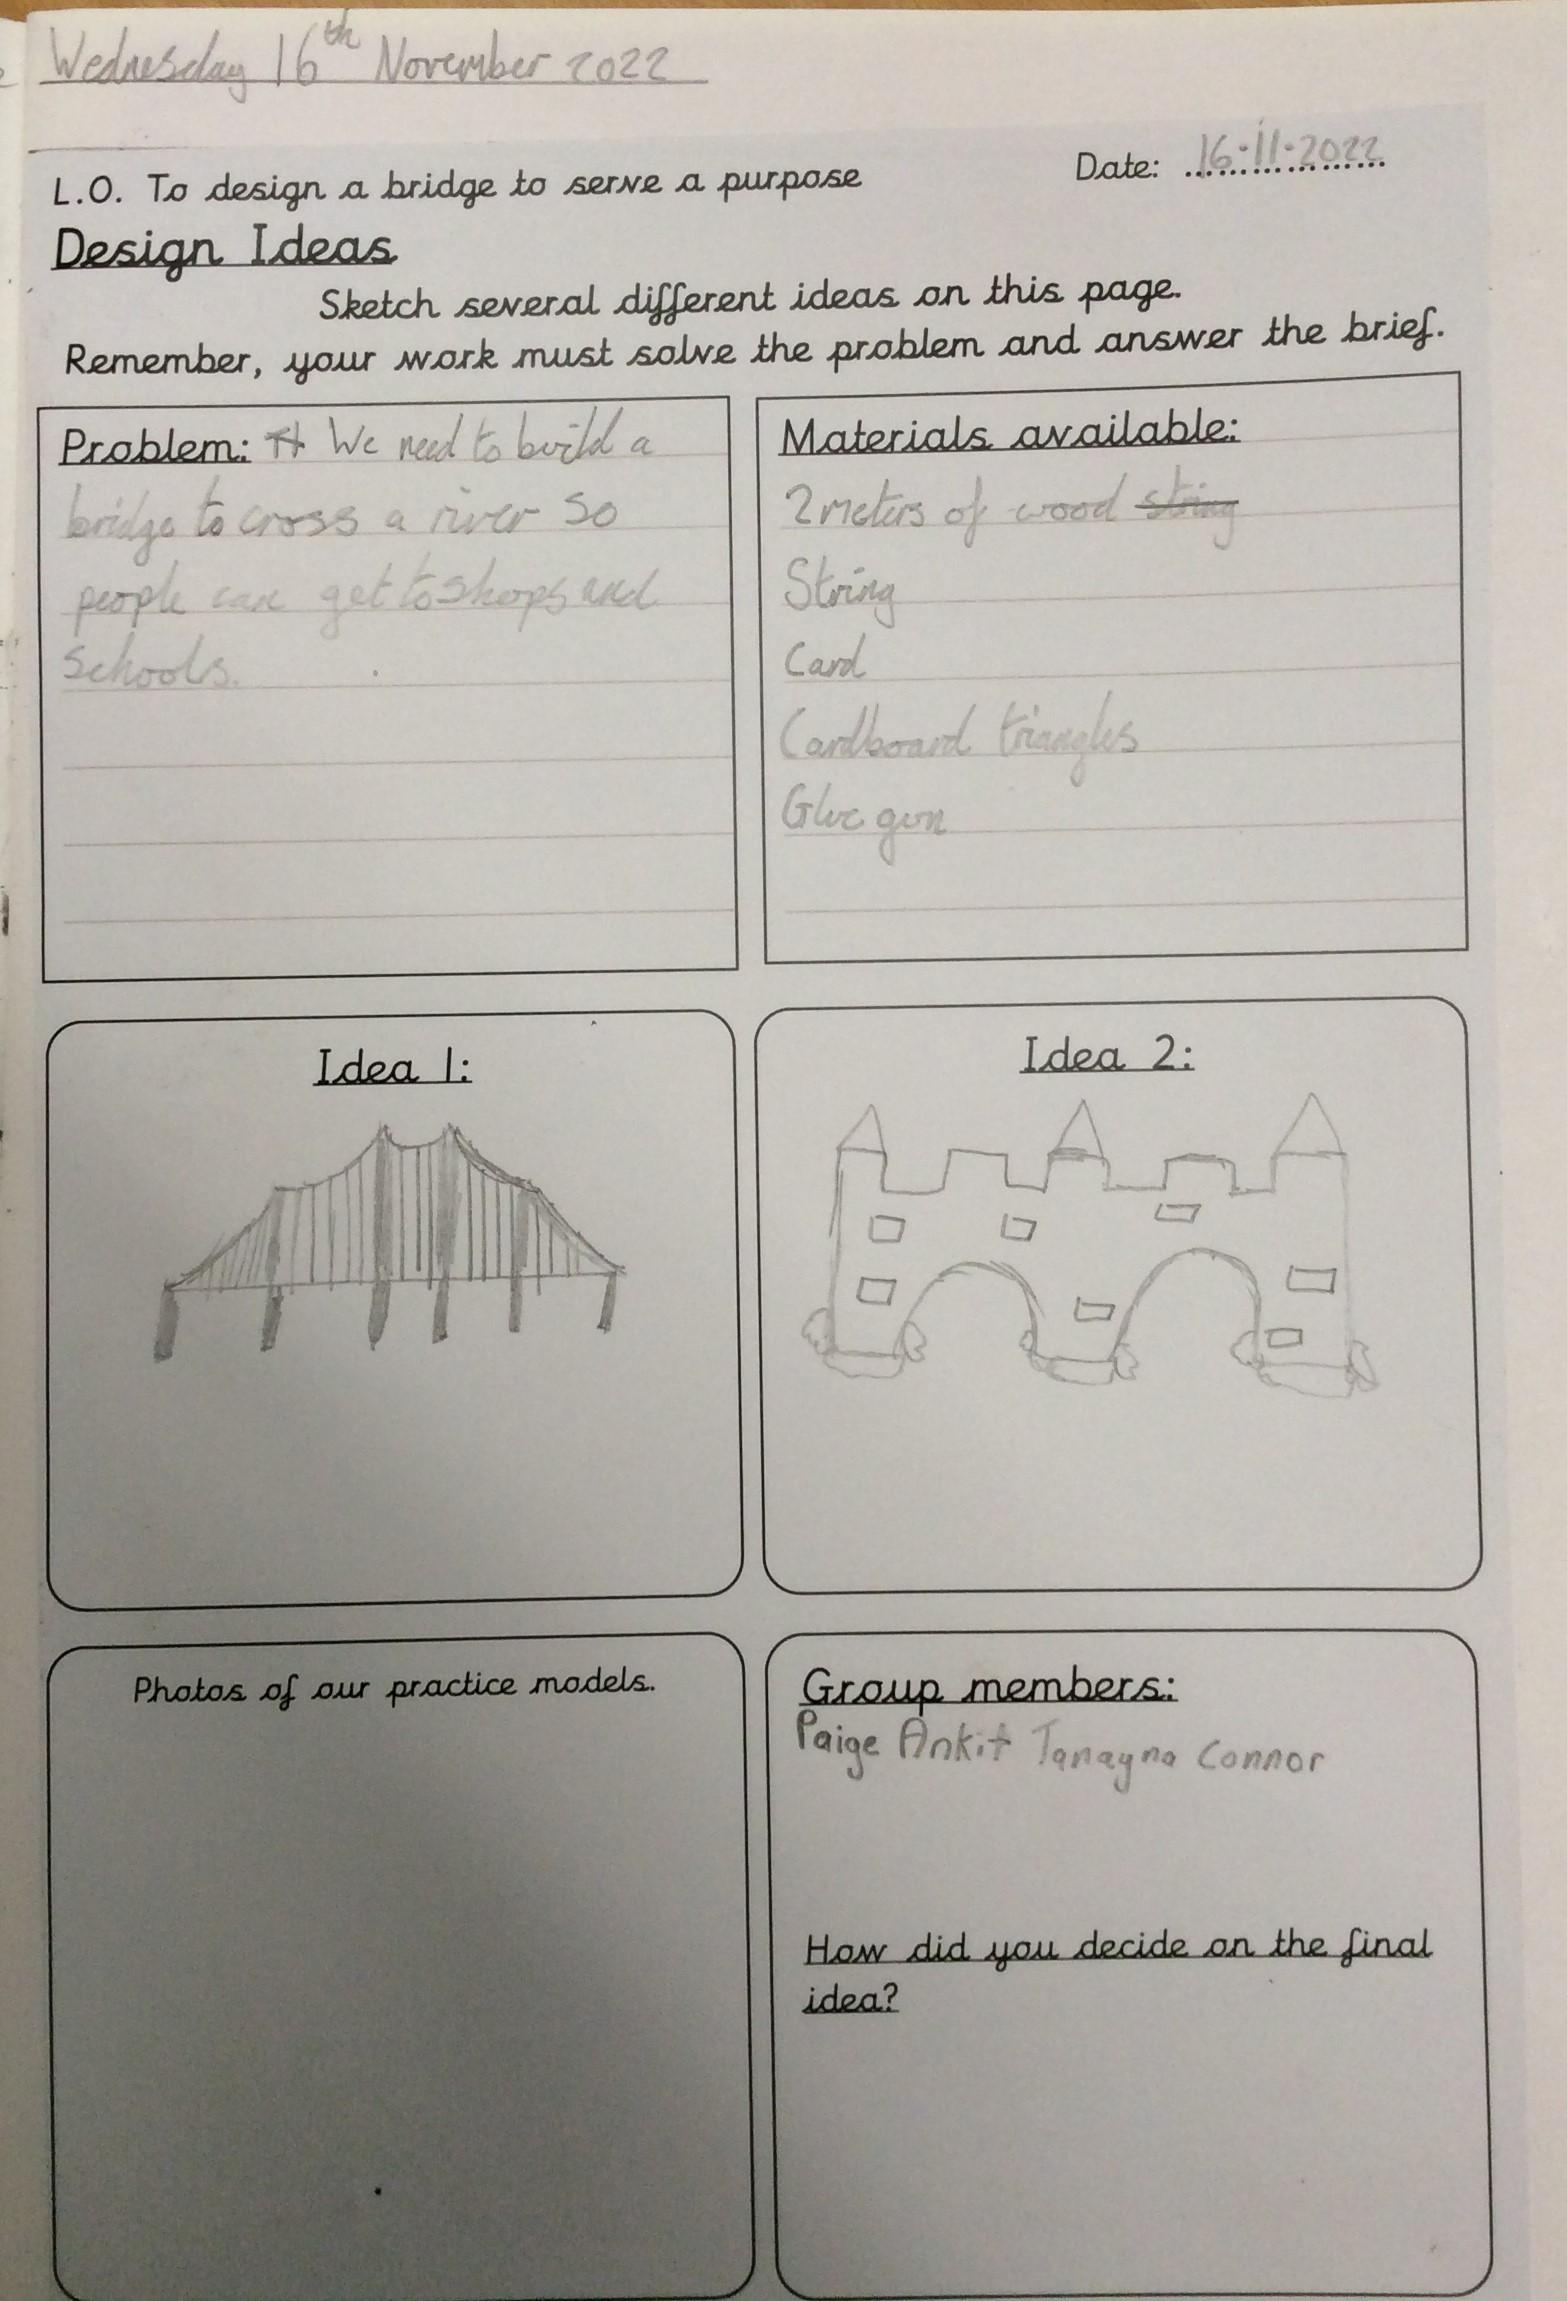 Wednesday 16th November 2022
Date: 16.11.2022
L.O. To design a bridge to serve a purpose
Design Ideas
Sketch several different ideas on this page.
Remember, your work must solve the problem and answer the brief.
Problem: We need to build a
bridge to cross a river so
people can get to shops and
schools.
Materials available:
2 meters of wood string
String
Card
Cardboard triangles
Glue gun
Idea 1:
Idea 2:
Photos of our practice models.
Group members:
Paige Ankit Tanayna Connor
How did you decide on the final
idea?